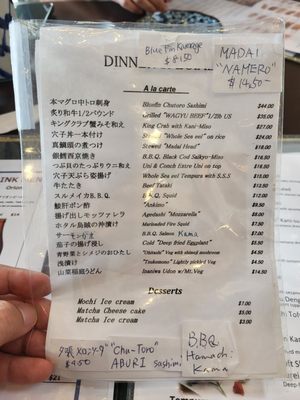 Blue Fin Kurage
$8.50
MADAI
"NAMERO"
$14.50
DINN
A la carte
本マグロ中トロ刺身 Bluefin Chutoro Sashimi $44.00
炙り和牛1/2パウンド Grilled "WAGYU BEEF" 1/2lb US $35.00
キングクラブ蟹みそ和え King Crab with Kani-Miso $27.00
穴子丼一本付け Stewed "Whole Sea eel" on rice $24.00
真鯛頭の煮つけ Stewed "Madai Head" $18.00
銀鱈西京焼き B.B.Q. Black Cod Saikyo-Miso $16.50
つぶ貝のたっぷりウニ和え Uni & Conch Extra Uni on top $18.50
穴子天ぷら姿揚げ Whole Sea eel Tempura with S.S.S $18.50
牛たたき Beef Tataki $12.50
スルメイカB.B.Q. B.B.Q. Squid $17.00
鮟肝ポン酢 "Ankimo" $9.50
揚げ出しモッツァレラ Agedashi "Mozzarella" $8.00
ホタル烏賊の沖漬け Marinaded Fire Squid $7.50
サーモンかま B.B.Q. Salmon Kama $7.00
茄子の揚げ浸し Cold "Deep fried Eggplant" $5.50
青野菜としめじのおひたし "Ohitashi" Veg with shimeji mushroom $4.50
浅漬け "Tsukemono" Lightly pickled Veg $5.50
山菜稲庭うどん Inaniwa Udon w/Mt.Veg $14.50
Desserts
Mochi Ice cream $7.00
Matcha Cheese cake $5.00
Matcha Ice cream $3.00
"Chu-Toro"
$9.50
ABURI sashimi
B.B.Q
Hamachi
Kama
$21